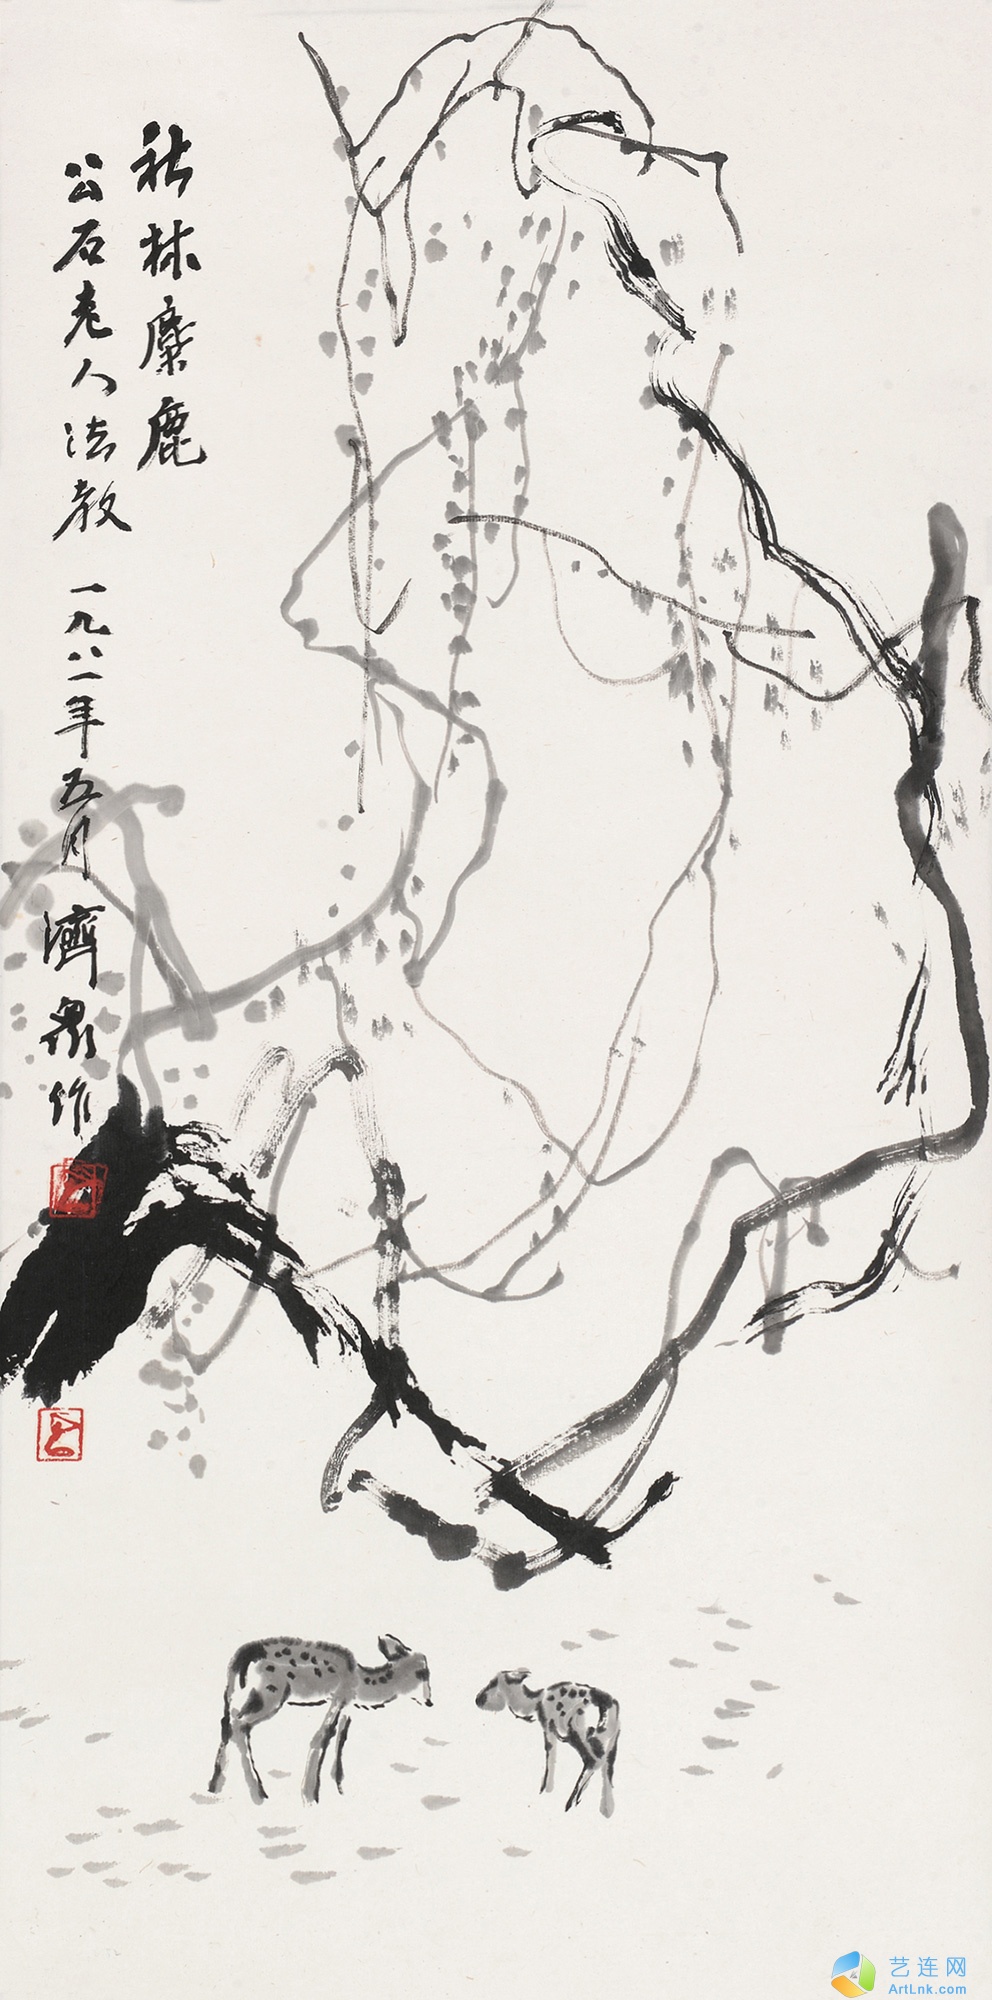 秋林麋鹿
公石老人法教 一九八一年五月 濟眾作
艺连网
ArtLnk.com